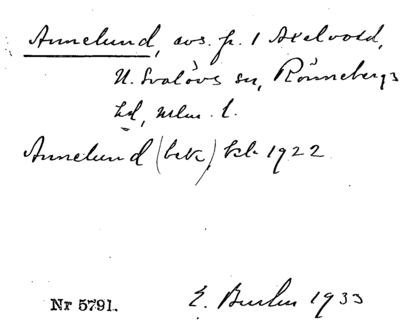 Annelund, avs. fr. 1 Axelvold,
N. Svalövs sn, Rönnebergs
hd, Mlm. l.
Annelund (bek) kb 1922
Nr 5791. E. 1933